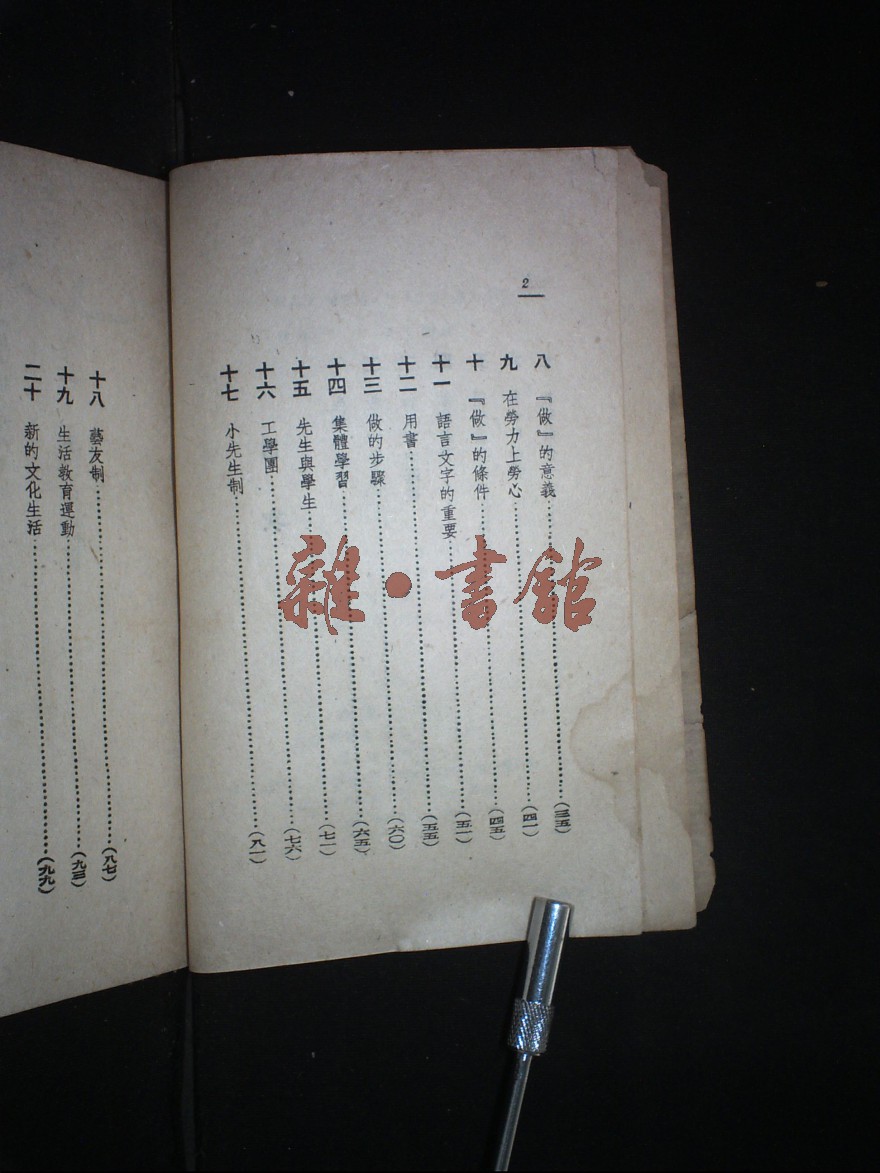 2
八 『做』的意義……(三五)
九 在勞力上勞心……(四一)
十 『做』的條件……(四五)
十一 語言文字的重要……(五一)
十二 用書……(五五)
十三 做的步驟……(六〇)
十四 集體學習……(六五)
十五 先生與學生……(七一)
十六 工學團……(七六)
十七 小先生制……(八一)
十八 藝友制……(八七)
十九 生活教育運動……(九三)
二十 新的文化生活……(九九)
雜·書館